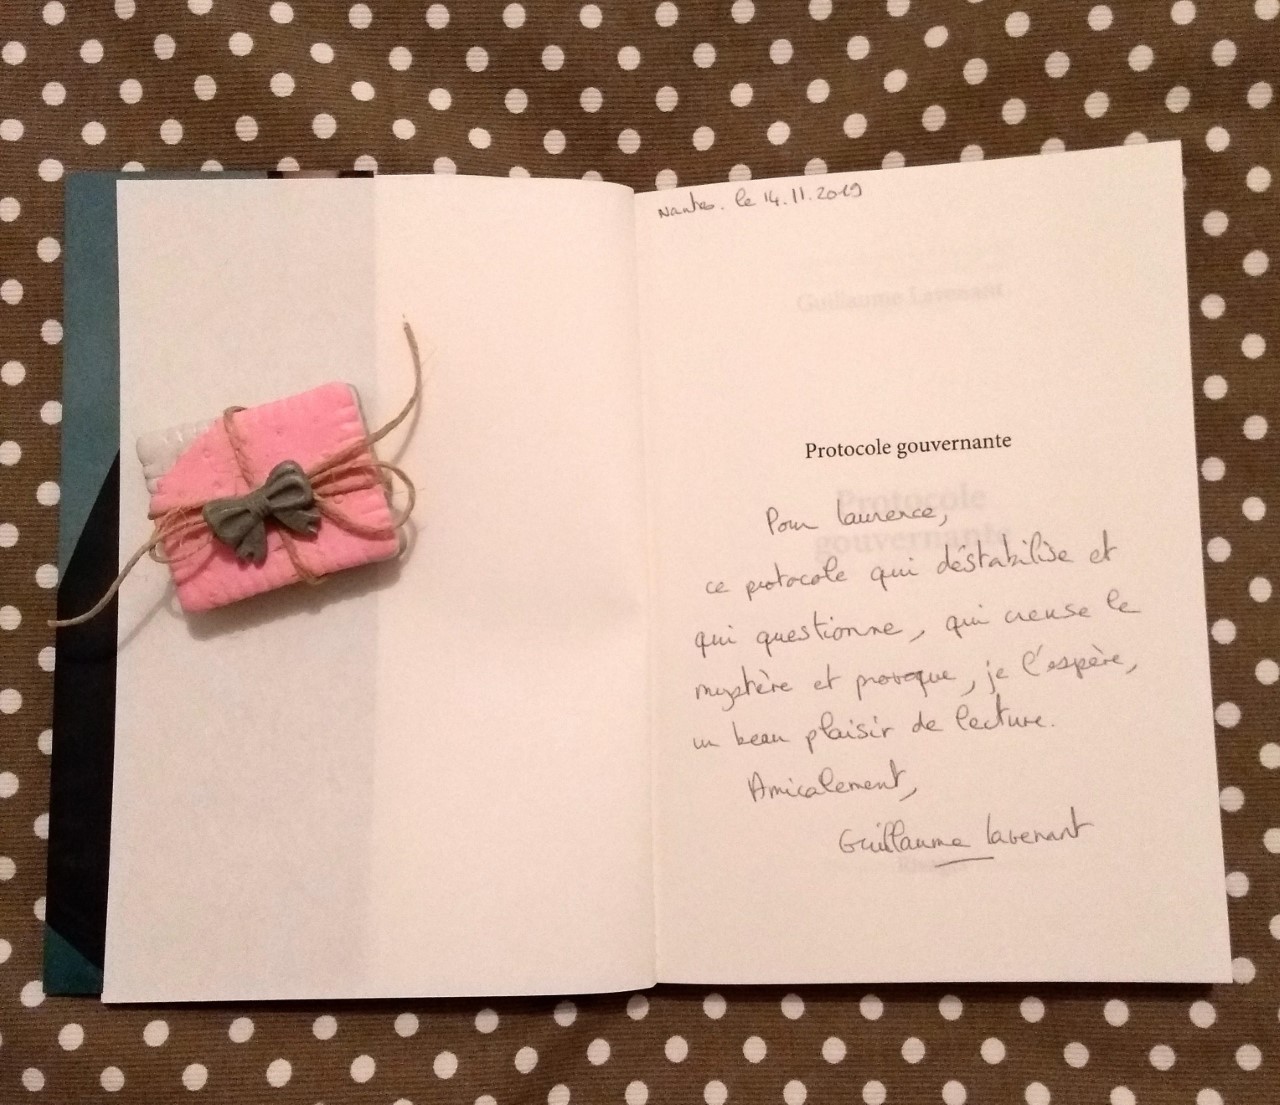 Nantes. le 14.11.2019
Guillaume Lavenant
Protocole gouvernante
Protocole
gouvernante
Pour Laurence,
ce protocole qui déstabilise et
qui questionne, qui creuse le
mystère et provoque, je l'espère,
un beau plaisir de lecture.
Amicalement,
Guillaume Lavenant